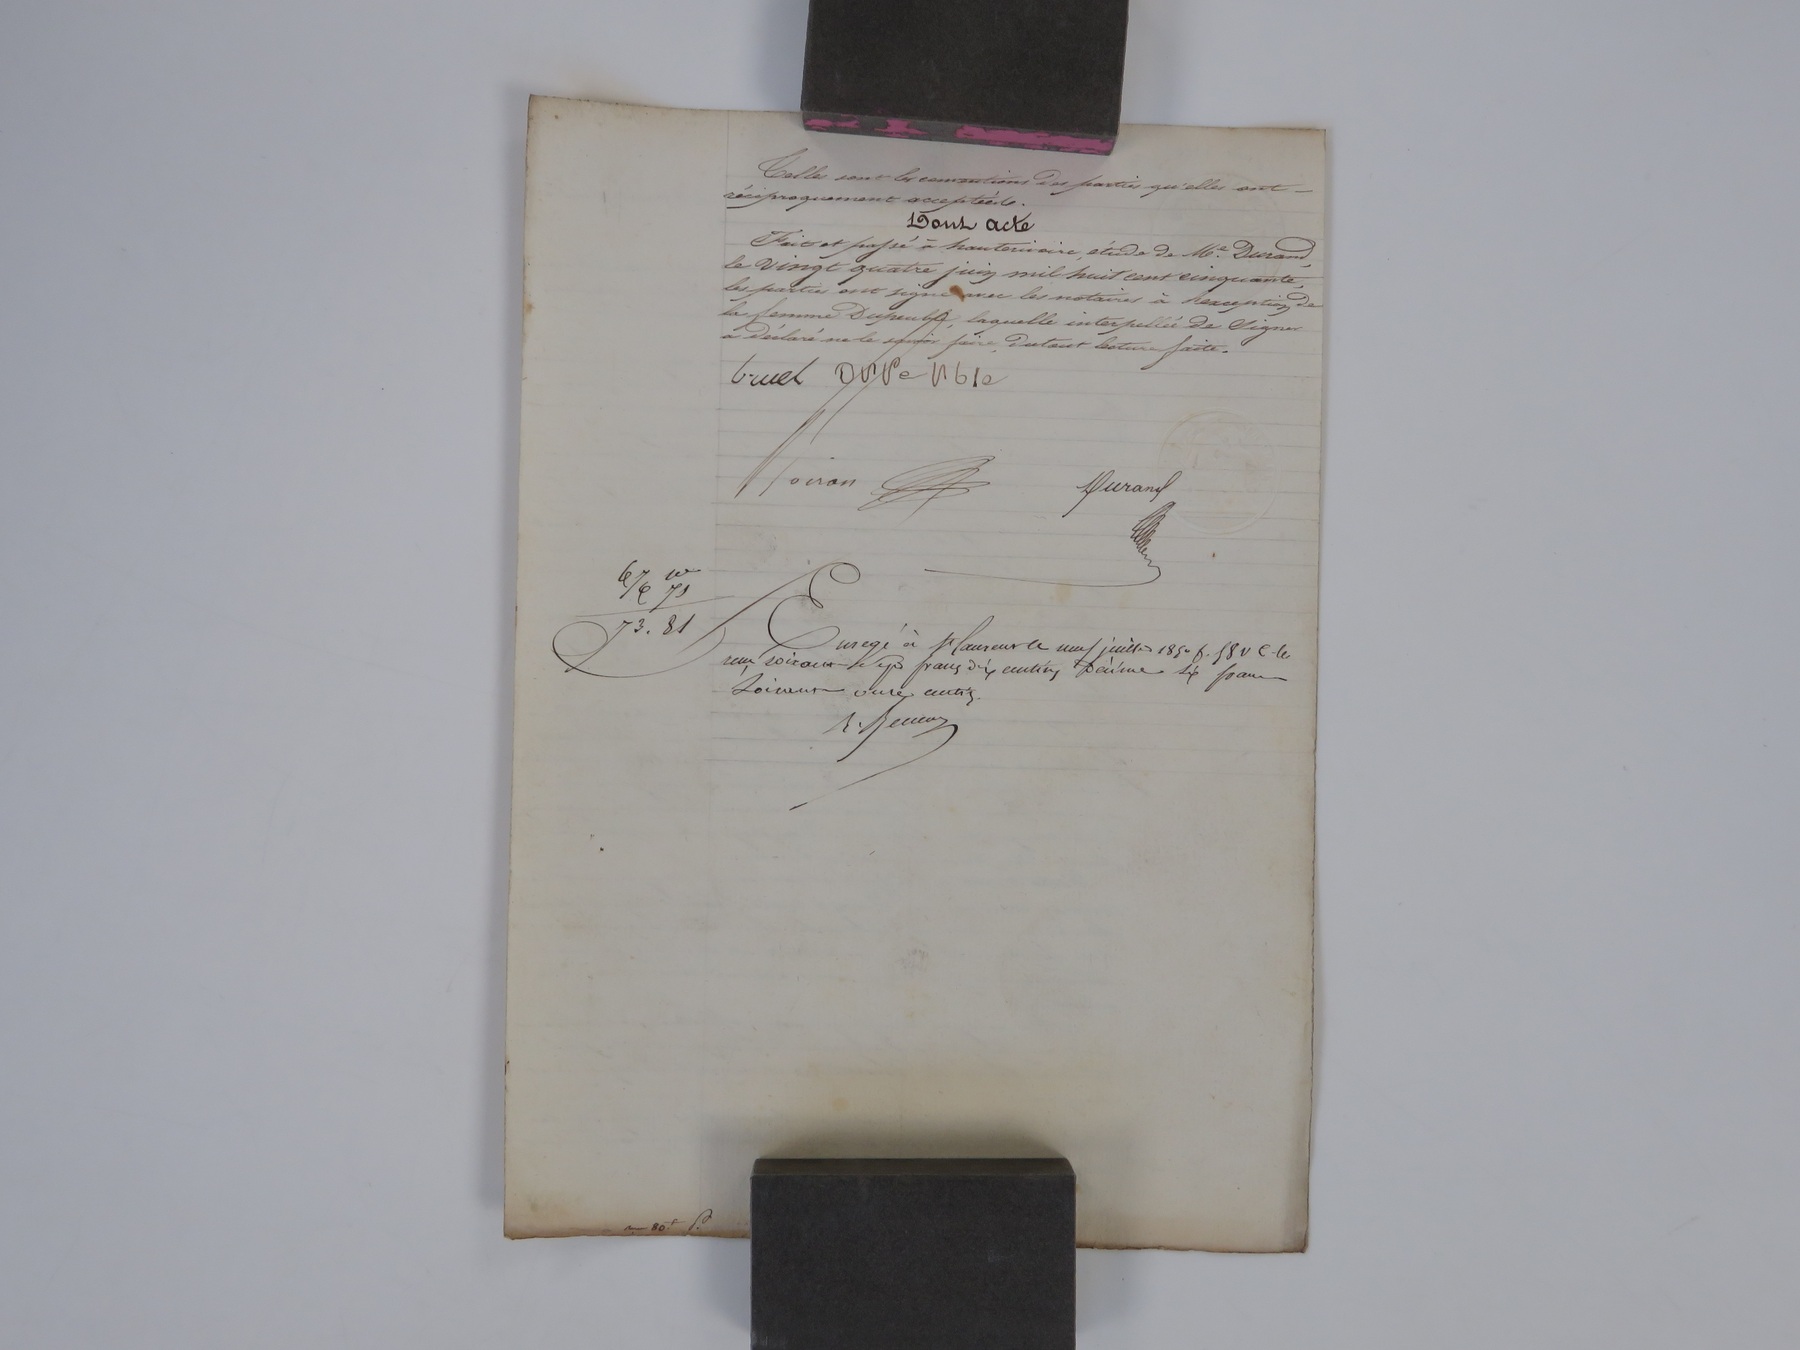 Telles sont les conventions des parties qu'elles ont
réciproquement acceptées.
Dont acte
Fait et passé à hauterivoire, étude de Me. Durand,
le vingt quatre juin mil huit cent cinquante,
les parties ont signé avec les notaires à l'exception de
la femme Dupeuble, laquelle interpellée de signer
a déclaré ne le savoir faire, du tout lecture faite.
bruel DUPeUble
Voiran Durand
67 10
6 71
73. 81
Enregé à St Laurent le neuf juillet 1850 f. 58 v C.
reçu soixante sept francs dix centimes décime six francs
soixante onze centimes.
80